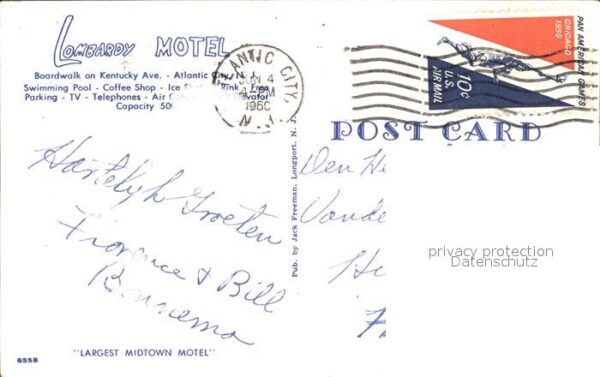 LOMBARDY MOTEL
Boardwalk on Kentucky Ave. - Atlantic City, N. J.
Swimming Pool - Coffee Shop - Ice Rink - Free
Parking - TV - Telephones - Air Elevator
Capacity 500
ATLANTIC CITY
JUN 4
PM
1960
N.J.
PAN AMERICAN GAMES
CHICAGO
1959
10¢
U.S.
AIR MAIL
POST CARD
Hartelyk Groeten
Florence & Bill
Bonnema
Pub. by Jack Freeman, Longport, N. J.
Den He
Vande
He
privacy protection
Datenschutz
655B
"LARGEST MIDTOWN MOTEL"